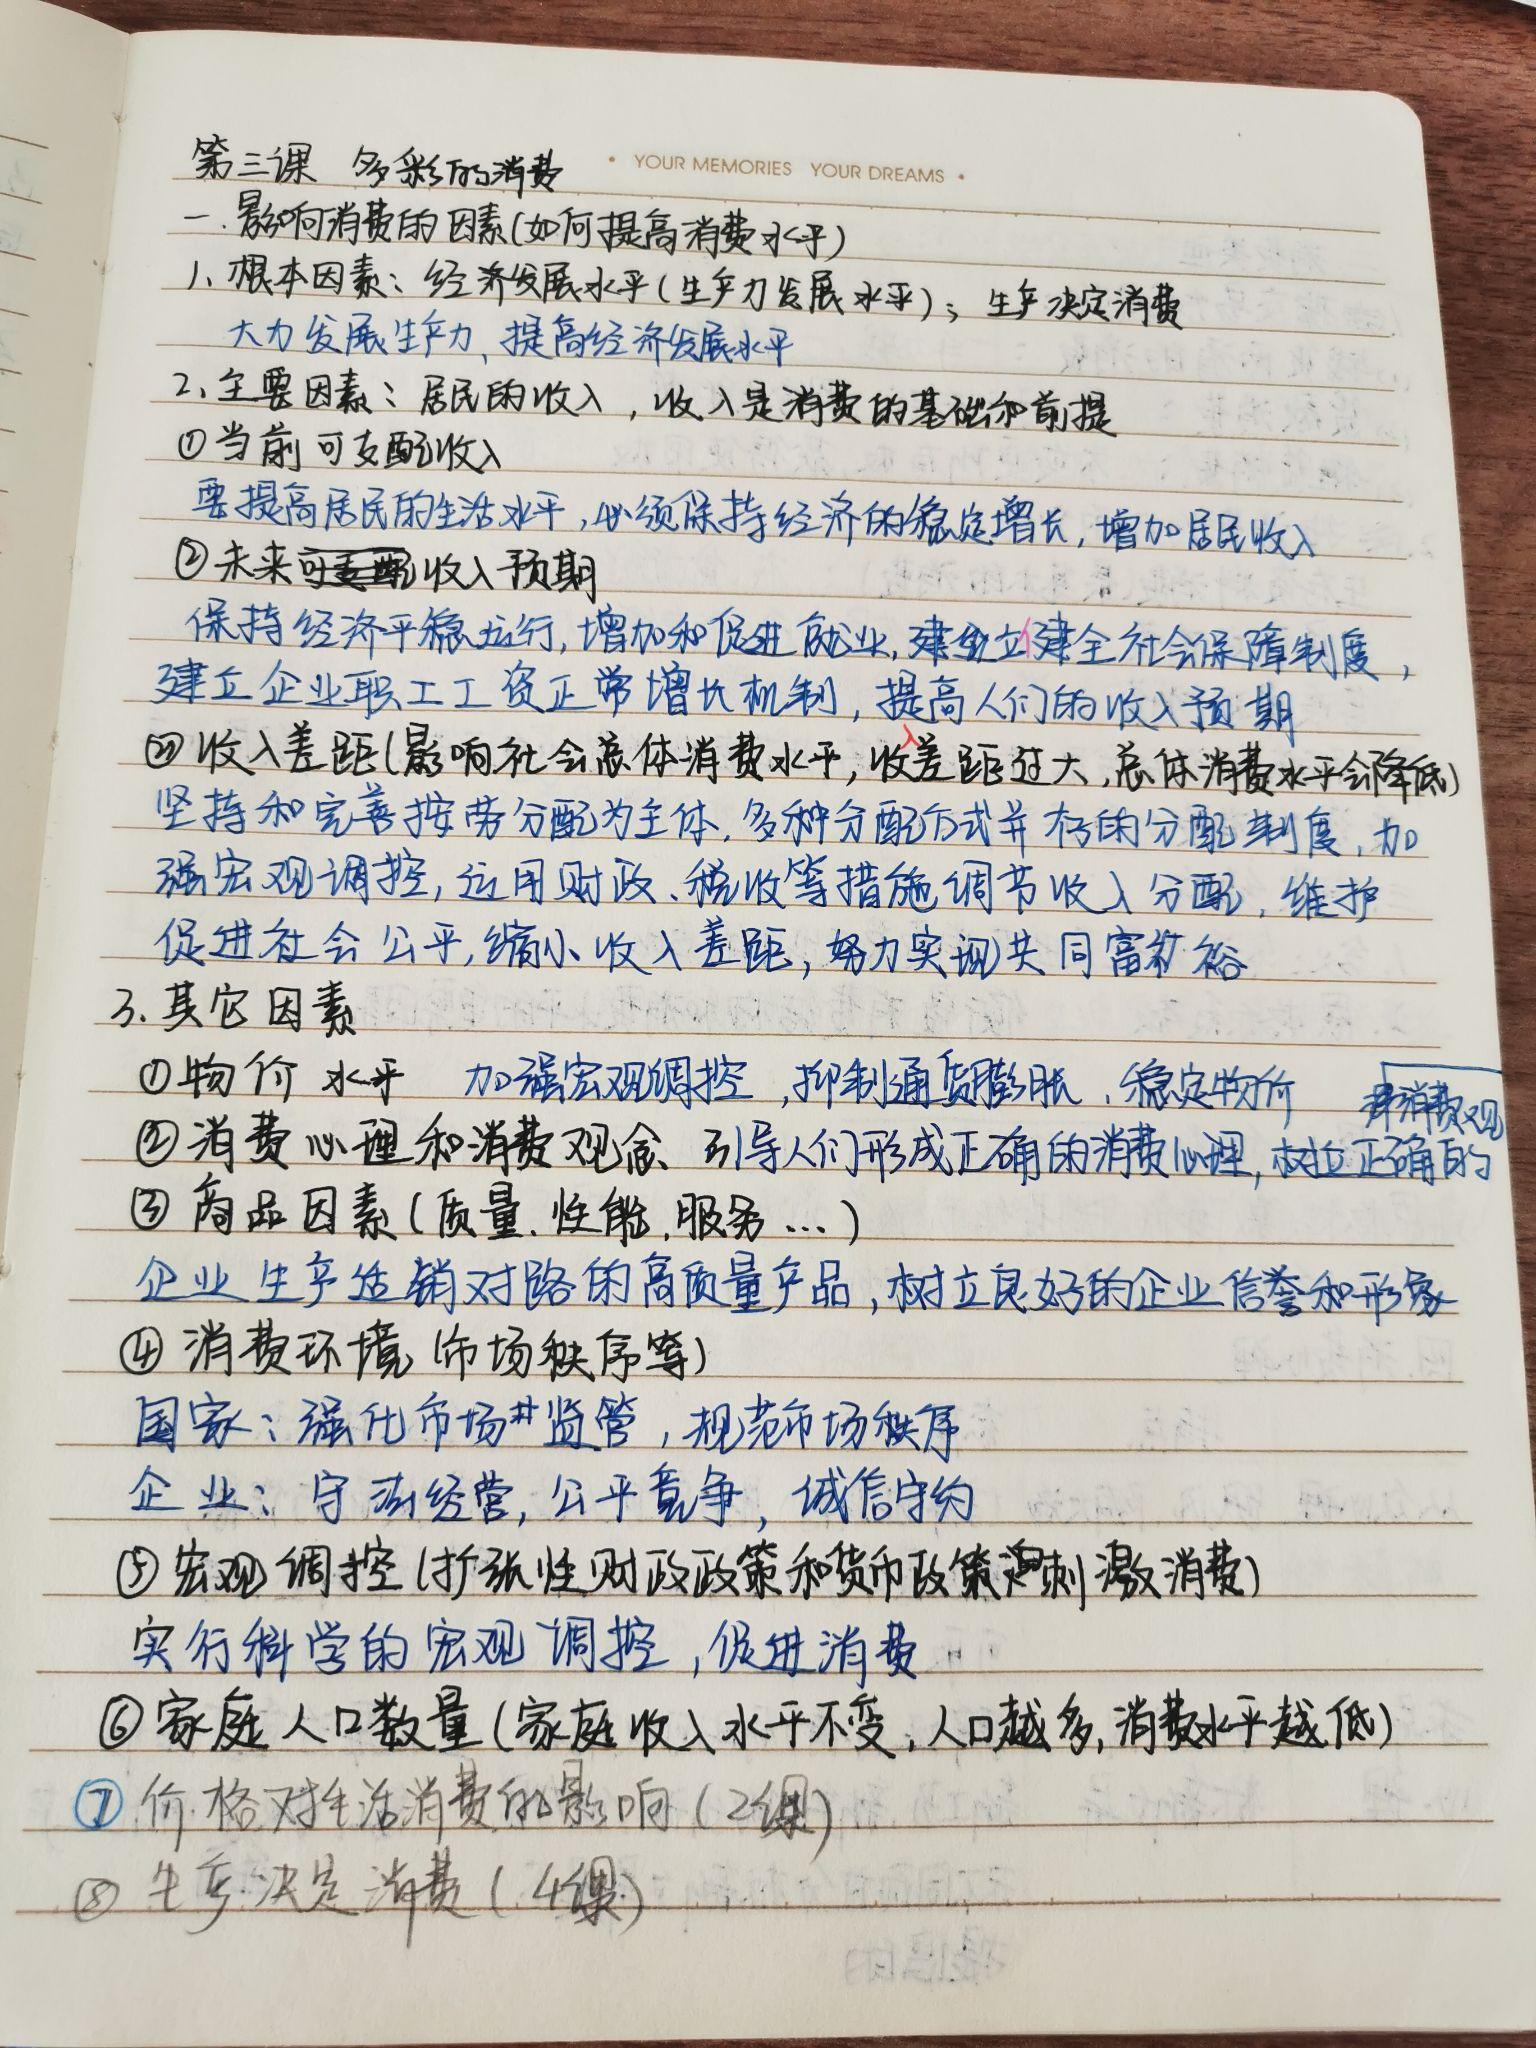 第三课 多彩的消费
• YOUR MEMORIES YOUR DREAMS •
一.影响消费的因素(如何提高消费水平)
1、根本因素:经济发展水平(生产力发展水平);生产决定消费
大力发展生产力、提高经济发展水平
2、主要因素:居民的收入,收入是消费的基础和前提
①当前可支配收入
要提高居民的生活水平,必须保持经济的稳定增长,增加居民收入
②未来收入预期
保持经济平稳运行,增加和促进就业,建立健全社会保障制度,
建立企业职工工资正常增长机制,提高人们的收入预期
③收入差距(影响社会总体消费水平,收入差距过大,总体消费水平会降低)
坚持和完善按劳分配为主体.多种分配方式并存的分配制度,加
强宏观调控,运用财政、税收等措施调节收入分配,维护
促进社会公平,缩小收入差距,努力实现共同富裕
3.其它因素
①物价水平 加强宏观调控,抑制通货膨胀、稳定物价
②消费心理和消费观念 引导人们形成正确的消费心理,树立正确的
消费观
③商品因素(质量.性能.服务...)
企业生产适销对路的高质量产品,树立良好的企业信誉和形象
④消费环境(市场秩序等)
国家:强化市场监管,规范市场秩序
企业:守法经营,公平竞争,诚信守约
⑤宏观调控(扩张性财政政策和货币政策刺激消费)
实行科学的宏观调控,促进消费
⑥家庭人口数量(家庭收入水平不变,人口越多,消费水平越低)
⑦价格对生活消费的影响(2课)
⑧生产决定消费(4课)